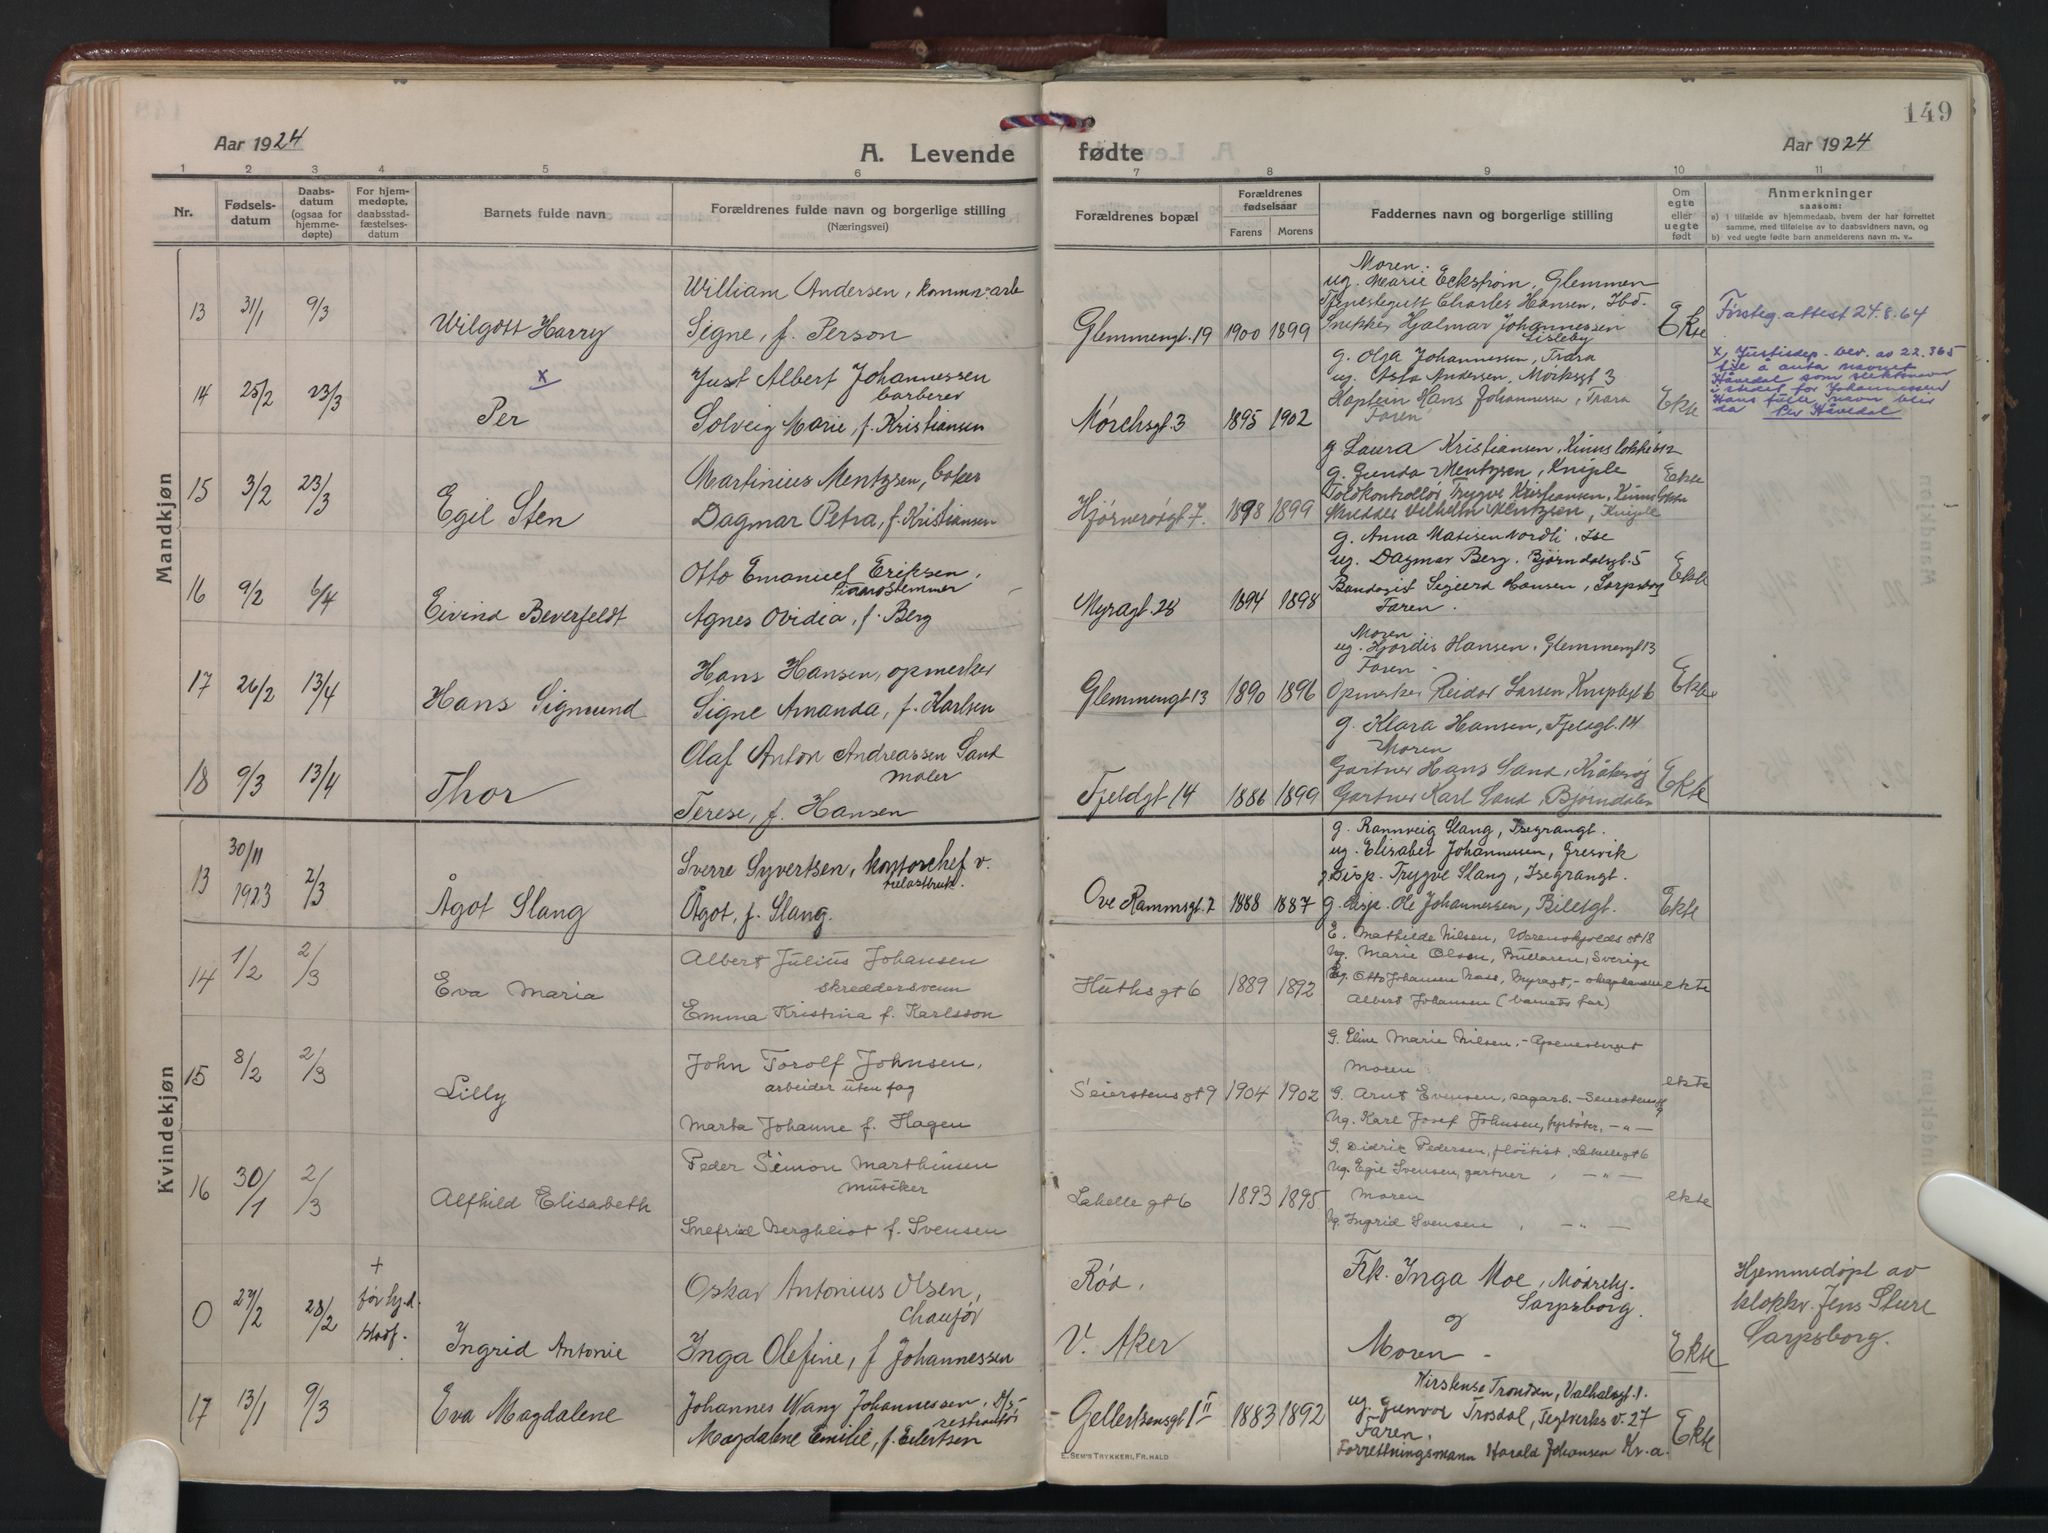 149
Aar 1924
A. Levende fødte
Aar 1924
1 2 3 4 5 6 7 8 9 10 11
Nr.
Fødsels-
datum
Daabs-
datum
(ogsaa for
hjemme-
døpte)
For hjem-
medøpte,
daabsstad-
fæstelses-
datum
Barnets fulde navn
Forældrenes fulde navn og borgerlige stilling
(Næringsvei)
Forældrenes bopæl
Forældrenes
fødselsaar
Farens Morens
Faddernes navn og borgerlige stilling
Om
egte
eller
uegte
født
Anmerkninger
saasom:
a) i tilfælde av hjemmedaab, hvem der har forrettet
samme, med tilføielse av to daabsvidners navn, og
b) ved uegte fødte barn anmelderens navn m. v.
Mandkjøn
13 31/1 9/3 Wilgott Harry
William Andersen, komm. arb
Signe, f. Person
Glemmengt. 19 1900 1899
Moren.
ug. Marie Eckstrøm, Glemmen
Tjenestegutt Charles Hansen, Ibd.
Snekker Hjalmar Johannessen
Lisleby
Ekte
Førsteg. attest 24.8.64
14 25/2 23/3 x Per
Just Albert Johannessen
barberer
Solveig Marie, f. Kristiansen
Mørchsgt. 3 1895 1902
g. Olga Johannessen, Trara
ug. Asta Andersen, Mørksgt 3
Kaptein Hans Johannessen, Trara
Faren
Ekte
x Justisdep. bev. av 22.365
til å anta navnet
Håvedal som slektsnavn
i stedet for Johannessen
Hans fulle navn blir
da Per Håvedal
15 3/2 23/3 Egil Sten
Martinius Mentzsen, baker
Dagmar Petra, f. Kristiansen
Hjørnerødgt 7. 1898 1899
g. Laura Kristiansen,
g. Gunda Mentzsen, Kniple
Toldkontrollør Trygve Kristiansen,
Skredder Vilhelm Mentzsen, Kniple
Ekte
16 9/2 6/4 Eivind Beverfeldt
Otto Emanuel Eriksen,
Pianostemmer
Agnes Ovidia, f. Berg
Myragt. 28 1894 1898
g. Anna Matisen Nordli, Ise
ug. Dagmar Berg, Bjørndalsgt. 5
Bandagist Sigurd Hansen, Sarpsborg
Faren.
Ekte
17 26/2 13/4 Hans Sigmund
Hans Hansen, opmerker
Signe Amanda, f. Karlsen
Glemmengt 13 1890 1896
Moren
ug. Hjørdis Hansen, Glemmengt 13
Faren
Opmerker Reidar Larsen Kniplegt 6
Ekte
18 9/3 13/4 Thor
Olaf Anton Andreassen Sand
Maler
Terese, f. Hansen
Fjeldgt 14 1886 1899
g. Klara Hansen, Fjeldgt. 14
Moren
Gartner Hans Sand, Kråkerøy
Gartner Karl Sand, Bjørndalen
Ekte
Kvindekjøn
13 30/11
1923 2/3 Ågot Slang
Sverre Syvertsen, kontorchef v.
Ågot, f. Slang.
Ove Rammsgt. 2 1888 1887
g. Rannveig Slang, Isegrangt.
ug. Elisabet Johannessen, Gresvik
Disp. Trygve Slang, Isegrangt.
g. disp. Ole Johannessen, Biletgt.
Ekte
14 1/2 2/3 Eva Maria
Albert Julius Johansen
skreddersvenn
Emma Kristina f. Karlsson
Huthsgt 6 1889 1892
E. Mathilde Nilsen, Werenskjolds gt 18
Ug. Marie Olsson, Bullaren, Sverige
Ug. Otto Johansen Nass, Myragt,
Albert Johansen (barnets far)
ekte
15 8/2 2/3 Lilly
John Torolf Johnsen,
arbeider uten fag
Marta Johanne f. Hagen
Seierstensgt 9 1904 1902
G. Eline Marie Nilsen, - Apenesberget
Moren
G. Arnt Evensen, sagarb. - Seierstensgt
9
Ug. Karl Josef Johnsen, fyrbøter, - " -
ekte
16 30/1 2/3 Alfhild Elisabeth
Peder Simon Marthinsen
musiker
Snefrid Bergheiot f. Svensen
Labelle gt 6 1893 1895
G. Didric Pedersen, fløitist, Labellegt 6
Ug. Egil Svensen, gartner, - " -
Moren
Ug. Ingrid Svensen, - " -
ekte
0 27/2 28/2 +
før hj.d.
stadf. Ingrid Antonie
Oskar Antonius Olsen,
Chaufør
Inga Olefine, f Johannessen
Rød,
V. Aker
Frk. Inga Moe,
Sarpsborg.
og
Moren -
Ekte
Hjemmedøpt av
klokkr. Jens Sture
Sarpsborg.
17 13/1 9/3 Eva Magdalene
Johannes Wang Johannessen,
Magdalene Emilie, f. Eilertsen
Gellertsensgt 1 II 1883 1892
Kirstense Trondsen, Valhalsgt. 1.
ug. Gunvor Trosdal, Teglverks v. 27
Faren.
Forretningsmann Harald Johansen Kr. a.
Ekte
E. SEM'S TRYKKERI, FR.HALD